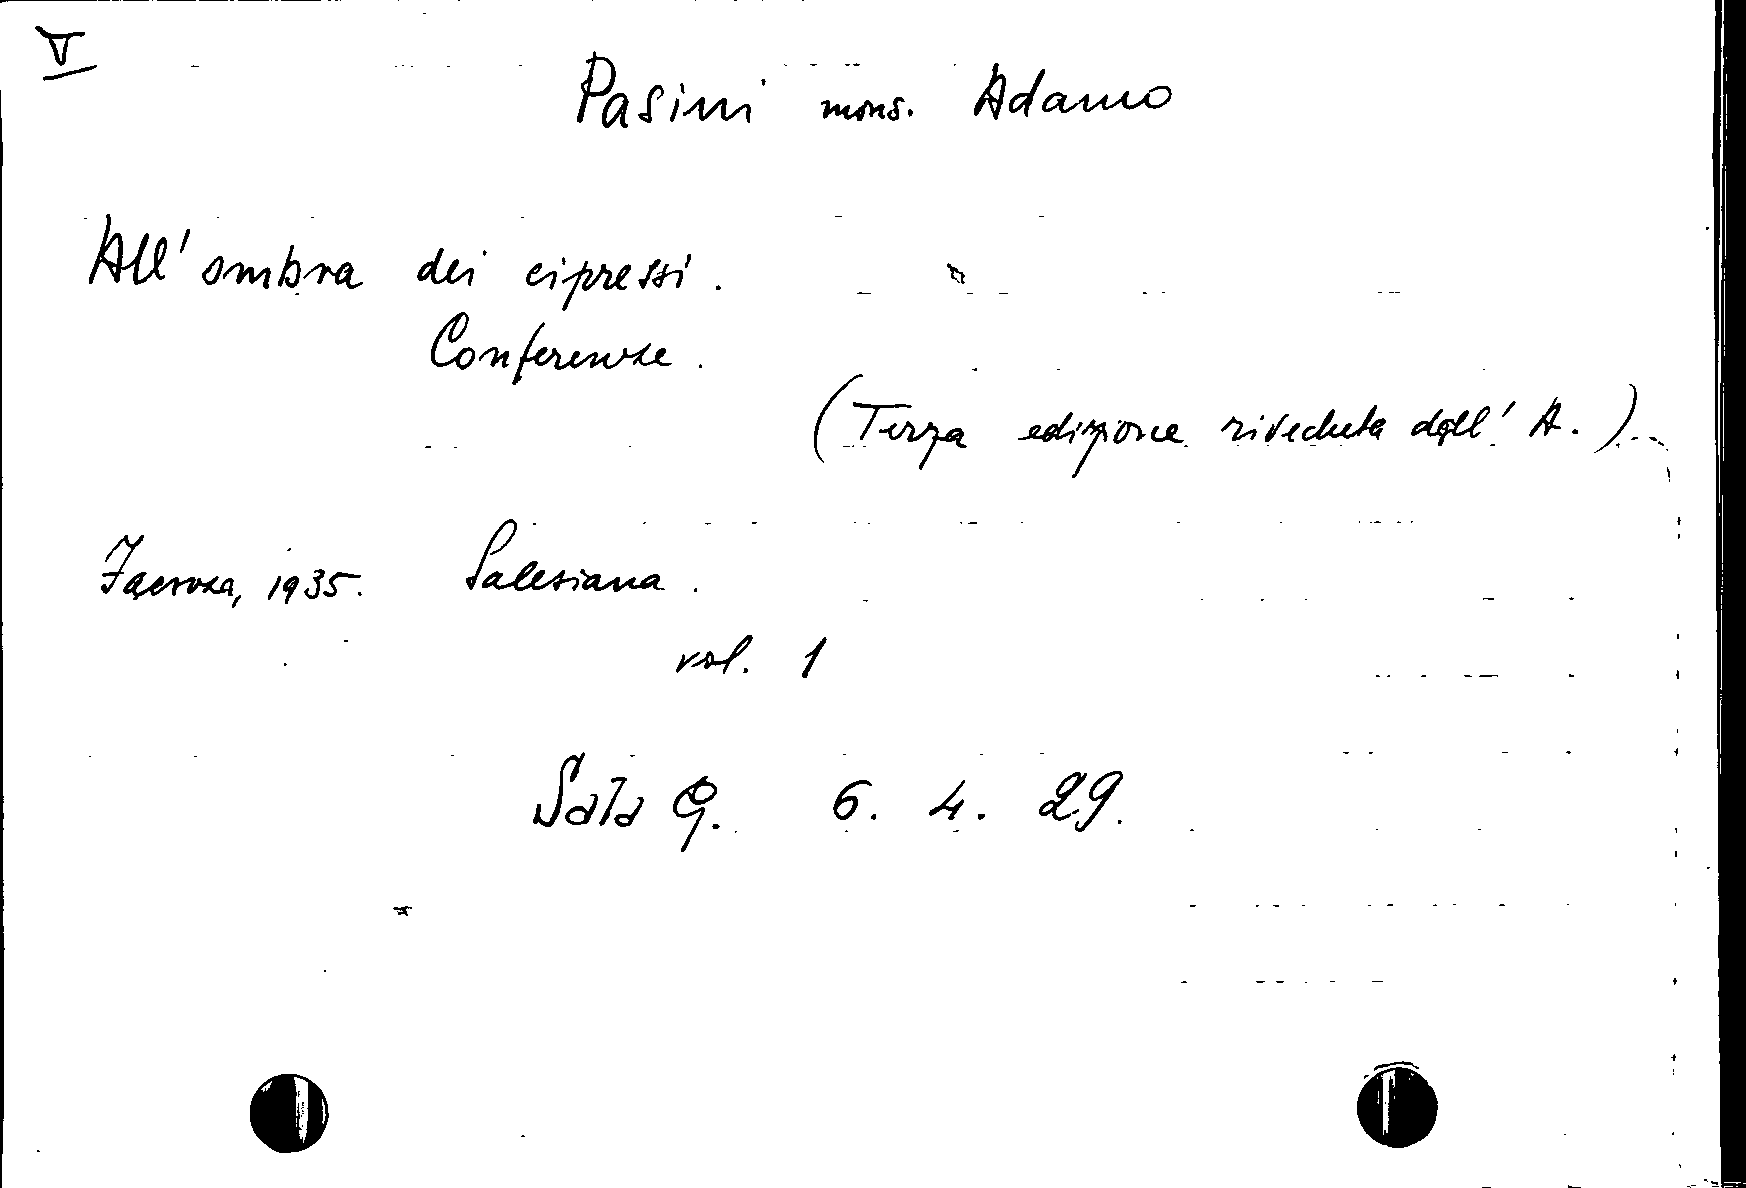 V
Pasini mons. Adamo
All' ombra dei cipressi.
Conferenze.
(Terza edizione riveduta dall' A.)
Faenza, 1935. Salesiana.
vol. 1
Sala G. 6. 4. 29.